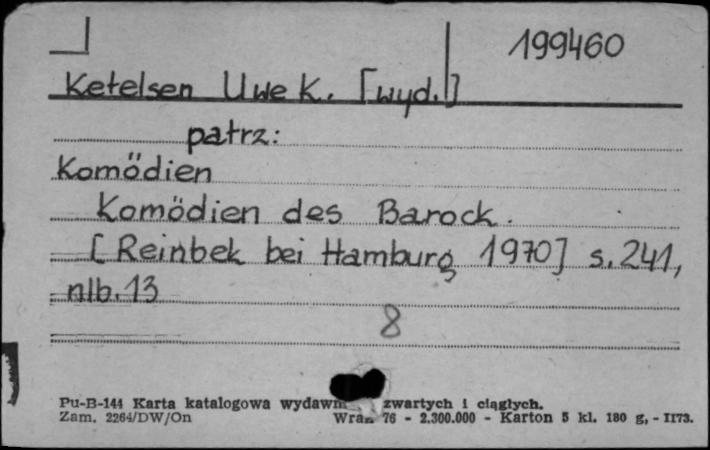 199460
Ketelsen Uwe K. [wyd.]
patrz:
Komödien
Komödien des Barock.
[Reinbek bei Hamburg 1970] s. 241,
nlb. 13
8
Pu-B-144 Karta katalogowa zwartych i ciągłych.
Zam. 2264/DW/On 76 - 2.300.000 - Karton 5 kl. 180 g, - II73.